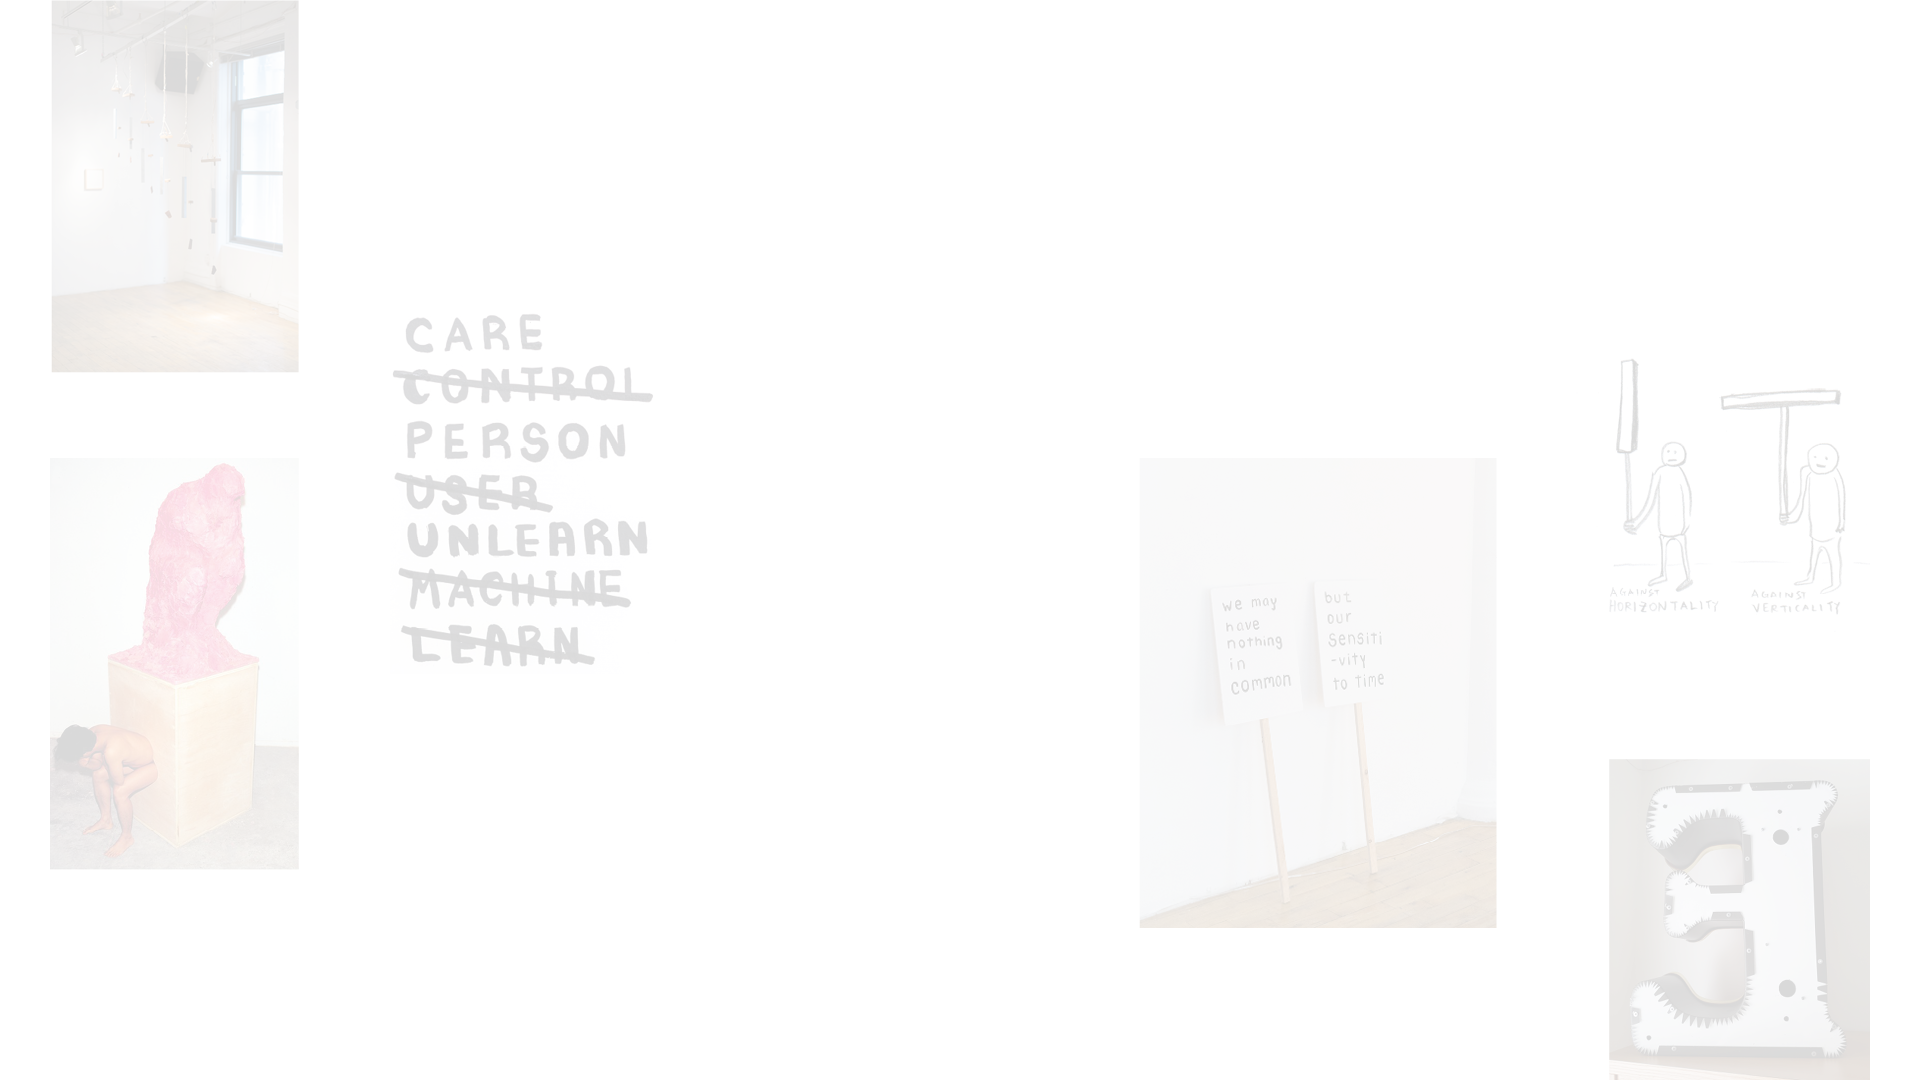 CARE
CONTROL
PERSON
USER
UNLEARN
MACHINE
LEARN
we may
have
nothing
in
common
but
our
sensiti
-vity
to time
AGAINST
HORIZONTALITY
AGAINST
VERTICALITY